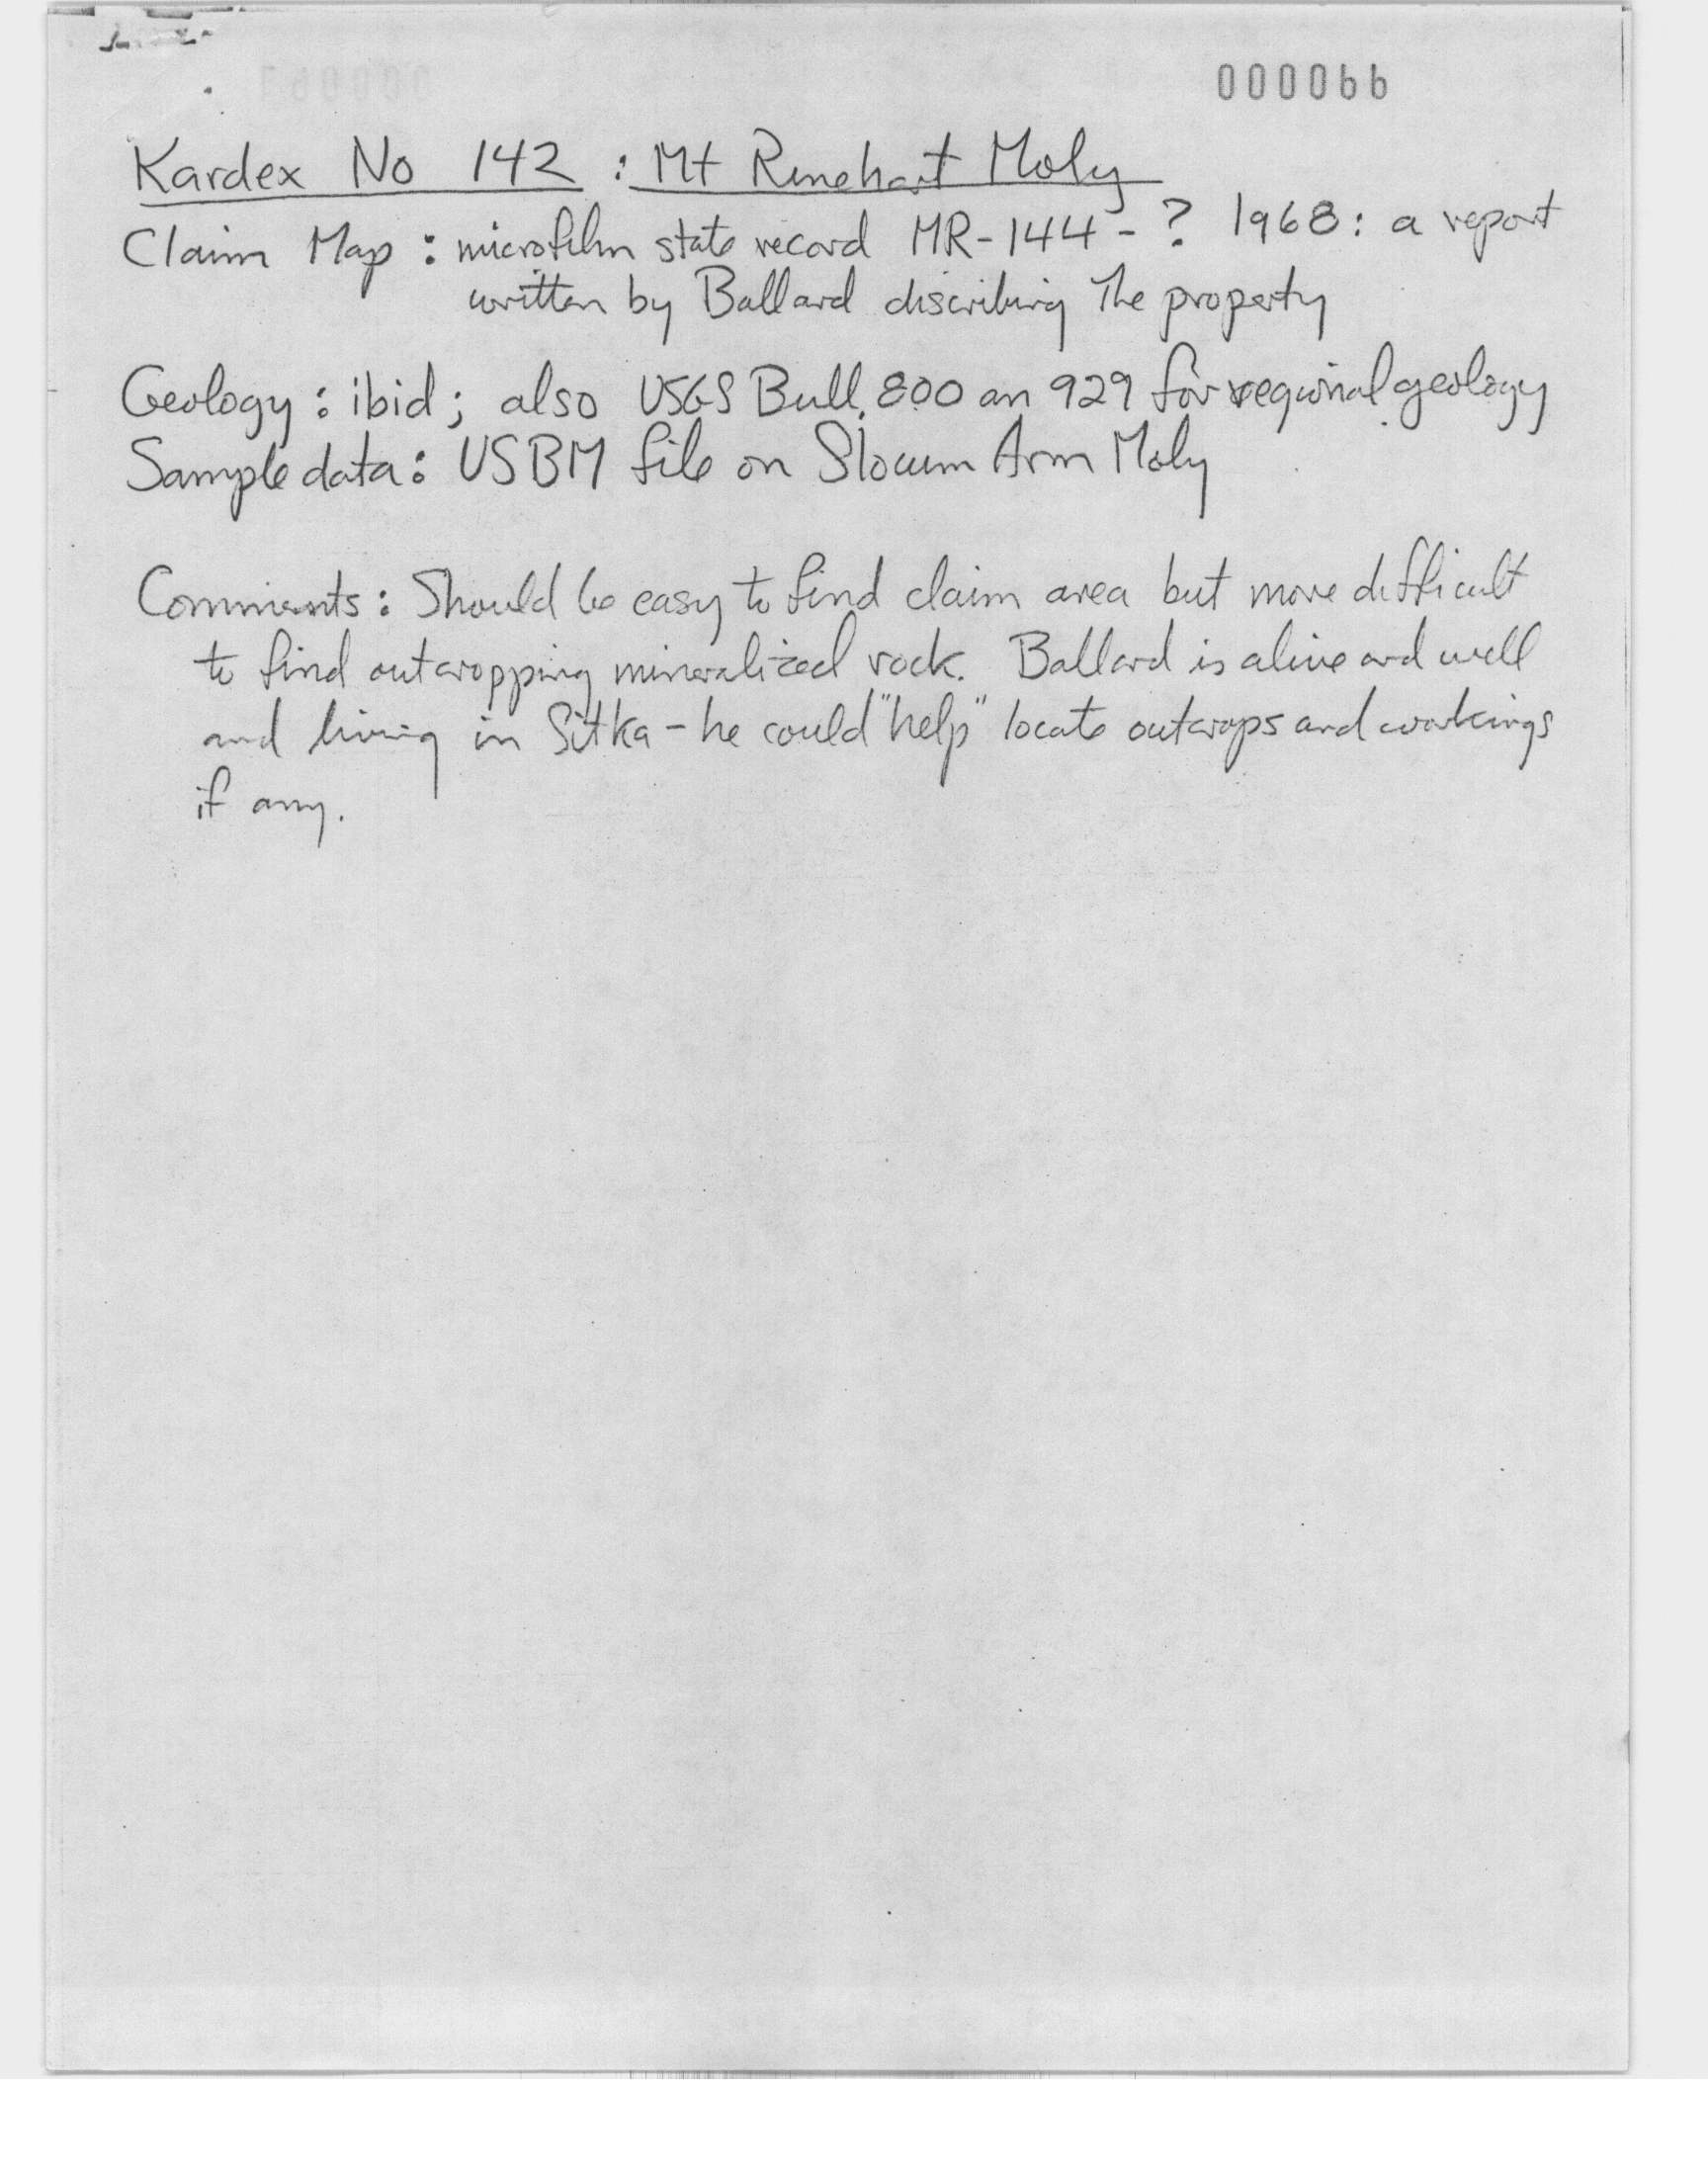 000066
Kardex No 142 : Mt Rinehart Moly
Claim Map : microfilm state record MR-144-? 1968: a report
written by Ballard discribing The property
Geology : ibid; also USGS Bull. 800 an 929 for regional geology
Sample data: USBM file on Slocum Arm Moly
Comments: Should be easy to find claim area but more difficult
to find outcropping mineralized rock. Ballard is alive and well
and living in Sitka - he could "help" locate outcrops and workings
if any.